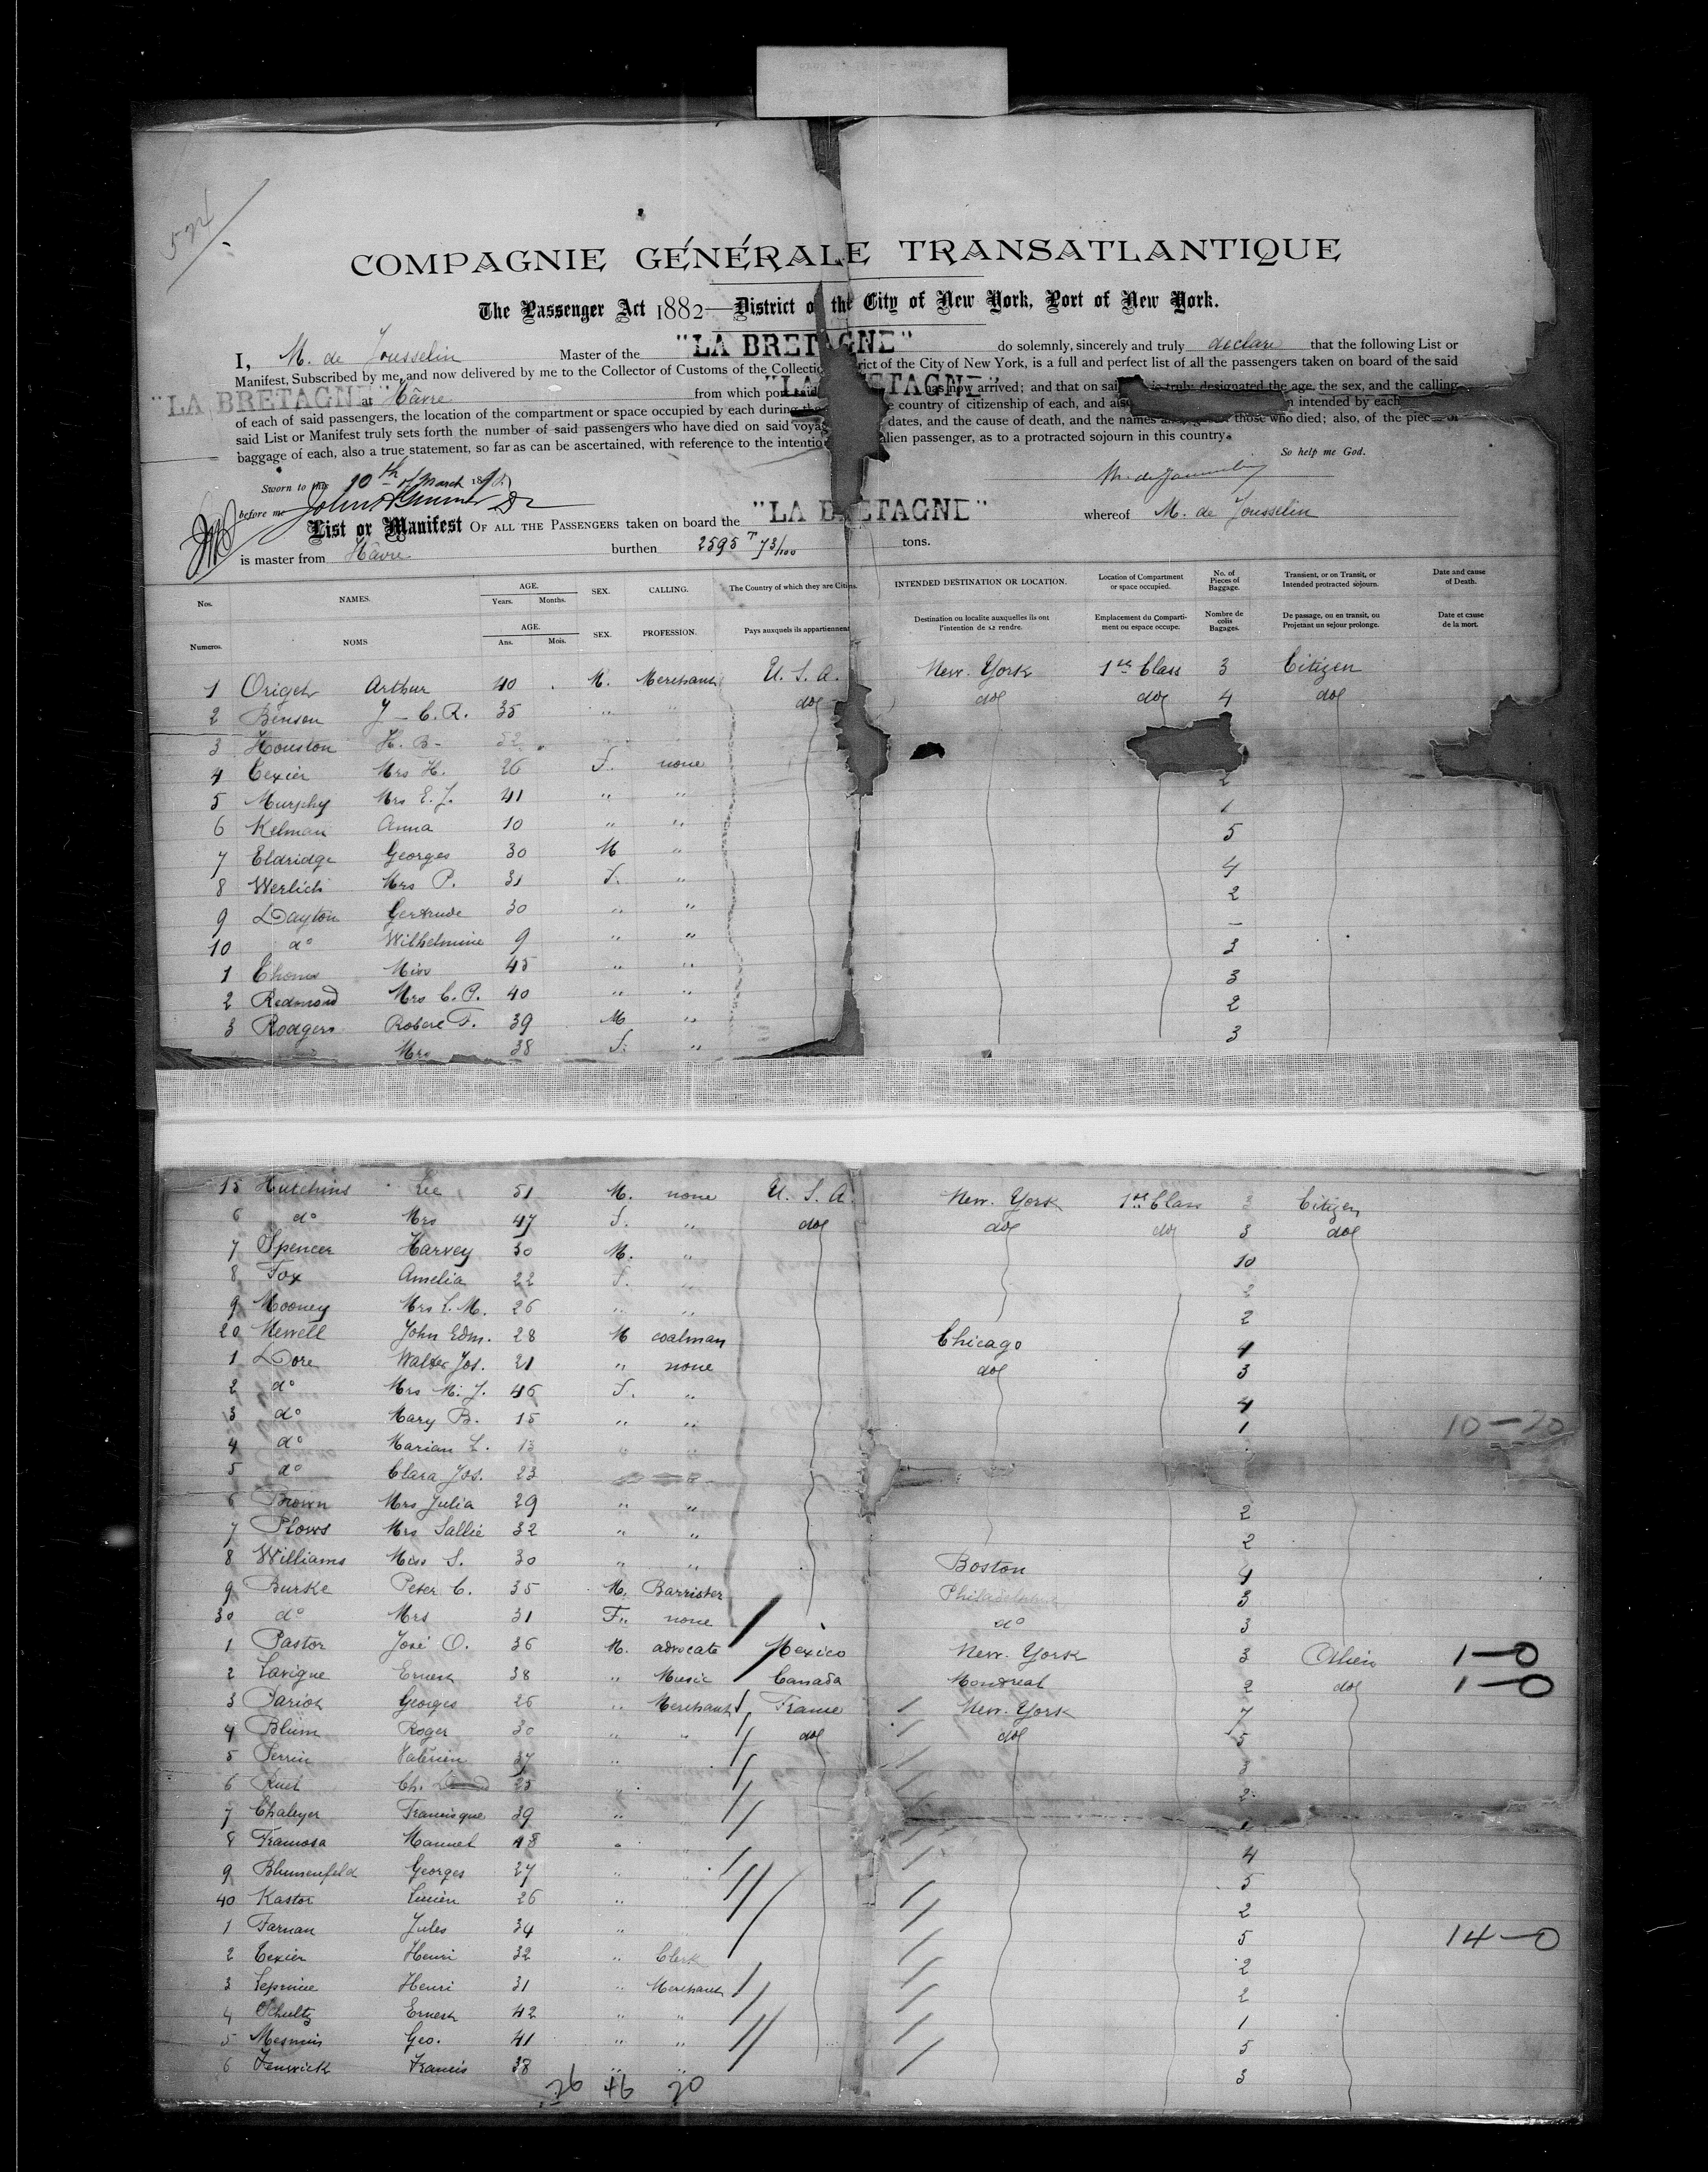 COMPAGNIE GÉNÉRALE TRANSATLANTIQUE
The Passenger Act 1882—District of the City of New York, Port of New York.
I, M. de Jousselin Master of the "LA BRETAGNE" do solemnly, sincerely and truly declare that the following List or
Manifest, Subscribed by me, and now delivered by me to the Collector of Customs of the Collection District of the City of New York, is a full and perfect list of all the passengers taken on board of the said
"LA BRETAGNE" at Hâvre from which port said "LA BRETAGNE" has now arrived; and that on said is truly designated the age, the sex, and the calling
of each of said passengers, the location of the compartment or space occupied by each during the country of citizenship of each, and also intended by each
said List or Manifest truly sets forth the number of said passengers who have died on said voyage dates, and the cause of death, and the names and those who died; also, of the pieces of
baggage of each, also a true statement, so far as can be ascertained, with reference to the intention alien passenger, as to a protracted sojourn in this country.
So help me God.
Sworn to this 10th of March 189
before me
List or Manifest OF ALL THE PASSENGERS taken on board the "LA BRETAGNE" whereof M. de Jousselin
is master from Hâvre burthen 2595 T 73/100 tons.
Nos. NAMES. AGE. Years. Months. SEX. CALLING. The Country of which they are Citizens. INTENDED DESTINATION OR LOCATION. Location of Compartment or space occupied. No. of Pieces of Baggage. Transient, or on Transit, or Intended protracted sojourn. Date and cause of Death.
Numeros. NOMS AGE. Ans. Mois. SEX. PROFESSION. Pays auxquels ils appartiennent Destination ou localite auxquelles ils ont l'intention de se rendre. Emplacement du Compartiment ou espace occupe. Nombre de colis Bagages. De passage, ou en transit, ou Projetant un sejour prolonge. Date et cause de la mort.
1 Origet Arthur 40 M. Merchant U. S. A. New. York 1st Class 3 Citizen
2 Binson J - C. R. 35 " " do do do 4 do
3 Houston H. B. 52
4 Texier Mrs H. 26 F. none 2
5 Murphy Mrs E. J. 41 " " 1
6 Kelman Anna 10 " " 5
7 Eldridge Georges 30 M " 4
8 Werlich Mrs P. 31 F. " 2
9 Dayton Gertrude 30 " " -
10 do Wilhelmine 9 " " 3
1 Thomas Miss 45 " " 3
2 Redmond Mrs C. P. 40 " " 2
3 Rodgers Robert F. 39 M " 3
Mrs 38 F. "
15 Hutchins Lee 51 M. none U. S. A. New. York 1st Class 3 Citizen
6 do Mrs 47 F. " do do do 3 do
7 Spencer Harvey 30 M. " 10
8 Fox Amelia 22 F. " 2
9 Mooney Mrs L. M. 26 " " 2
20 Newell John Edm. 28 M coalman Chicago 4
1 Dore Walter Jos. 21 " none do 3
2 do Mrs M. J. 46 F. " 4
3 do Mary B. 15 " " 1 10-20
4 do Marian L. 13 " "
5 do Clara Jos. 23
6 Brown Mrs Julia 29 " " 2
7 Plows Mrs Sallie 32 " " 2
8 Williams Miss S. 30 " " Boston 4
9 Burke Peter C. 35 M. Barrister Philadelphia 3
30 do Mrs 31 F. none do 3
1 Pastor José O. 36 M. advocate Mexico New. York 3 Alien 1-0
2 Lavigne Ernest 38 " Music Canada Montreal 2 do 1-0
3 Dariot Georges 26 " Merchant France New. York 7
4 Blum Roger 30 " " do do 5
5 Perrin Valérien 37 " 3
6 Ruet Ch. 25 " 2
7 Chaleyer Francisque 39 "
8 Framosa Manuel 48 " 4
9 Blumenfeld Georges 27 " 5
40 Kastor Lucien 26 " 2
1 Farnan Jules 34 " 5 14-0
2 Texier Henri 32 " Clerk 2
3 Leprince Henri 31 " Merchant 2
4 Schultz Ernest 42 " " 1
5 Mesmin Geo. 41 " " 5
6 Fenwick Francis 38 " " 3
26 46 20